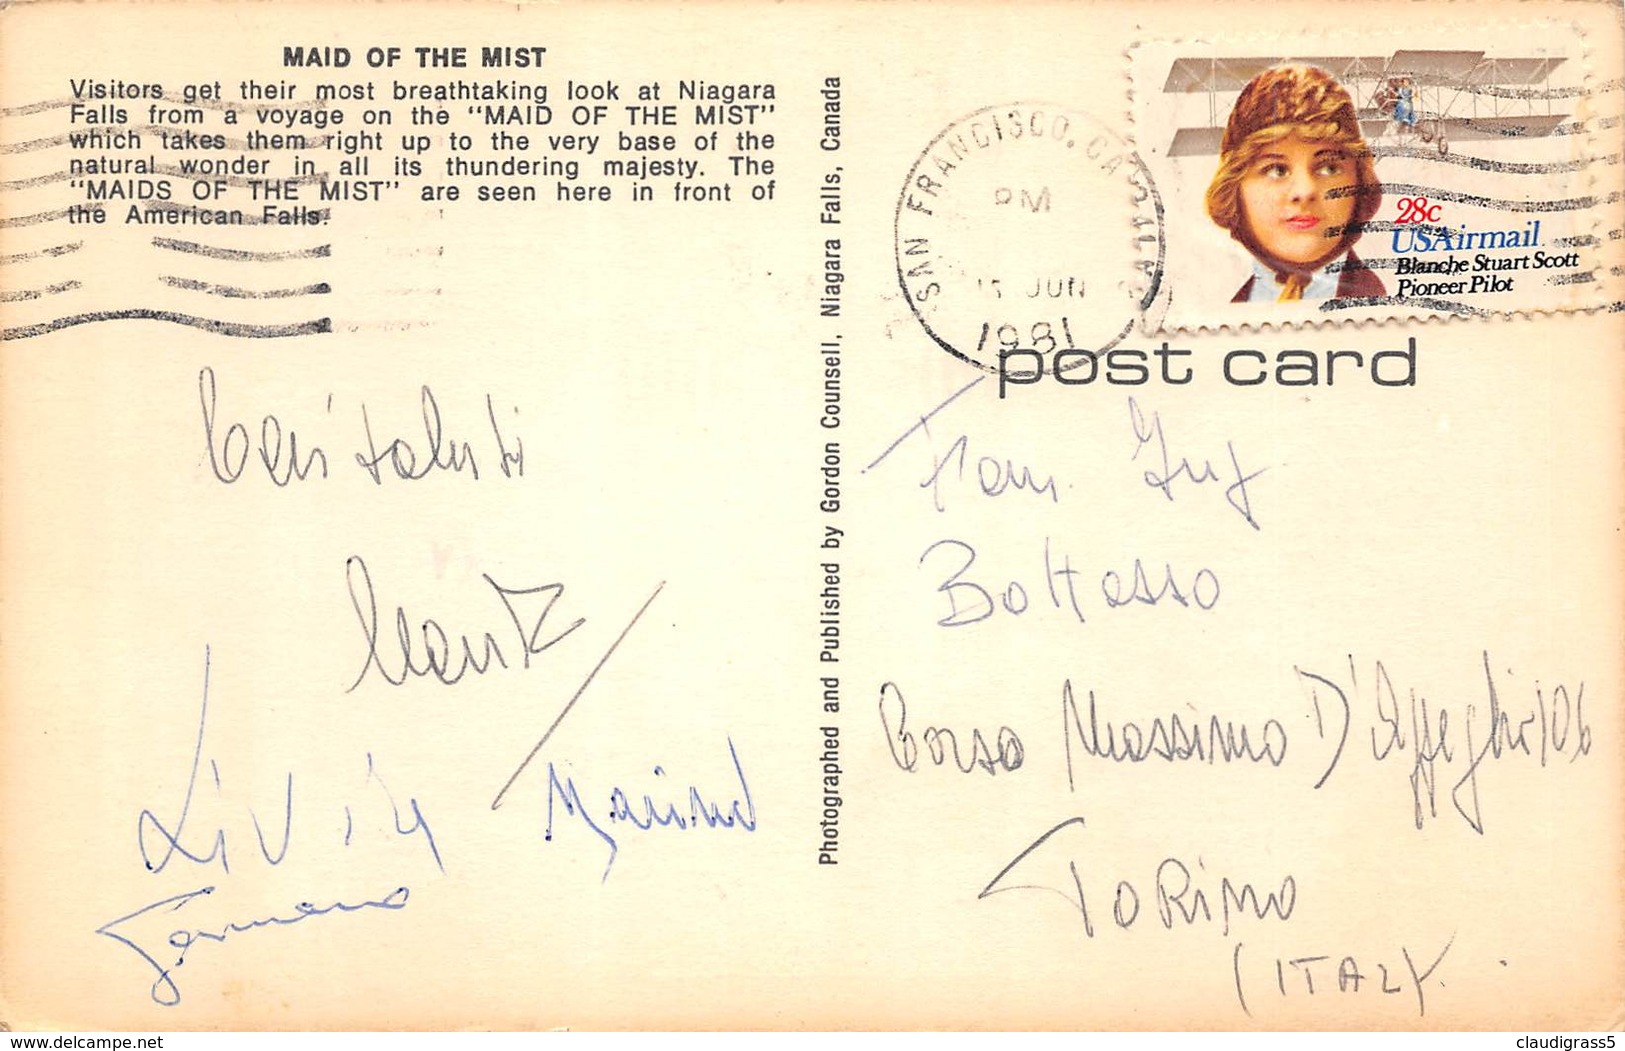 MAID OF THE MIST
Visitors get their most breathtaking look at Niagara
Falls from a voyage on the "MAID OF THE MIST"
which takes them right up to the very base of the
natural wonder in all its thundering majesty. The
"MAIDS OF THE MIST" are seen here in front of
the American Falls.
Photographed and Published by Gordon Counsell, Niagara Falls, Canada
SAN FRANCISCO, CA
PM
JUN
1981
28c
USAirmail
Blanche Stuart Scott
Pioneer Pilot
post card
Cari saluti
Livia
Marino
Germano
Fam.
Bottasso
Corso Massimo D'Azeglio 106
TORINO
(ITALY.
delcampe.net
claudigrass5